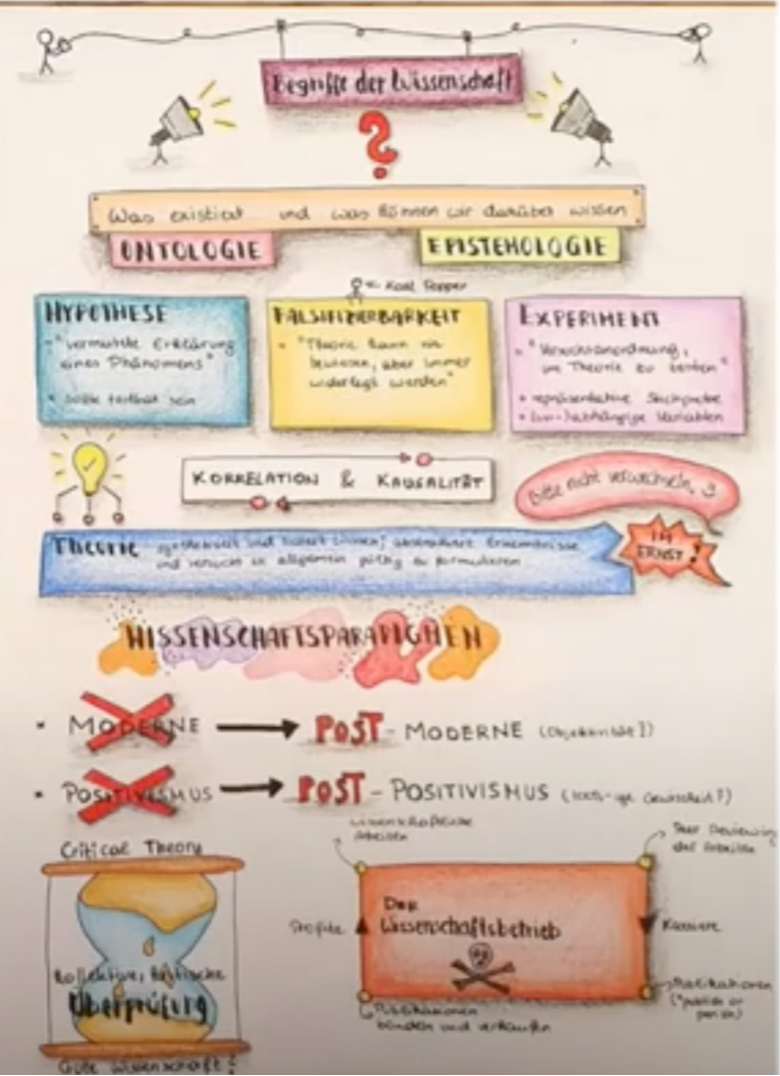 Begriffe der Wissenschaft
?
Was existiert und was können wir darüber wissen
ONTOLOGIE EPISTEMOLOGIE
Karl Popper
HYPOTHESE
- "vermutete Erklärung
eines Phänomens"
• sollte testbar sein
FALSIFIZIERBARKEIT
- "Theorie kann nie
bewiesen, aber immer
widerlegt werden"
EXPERIMENT
- "Versuchsanordnung,
um Theorie zu testen"
• repräsentative Stichprobe
• (un-)abhängige Variablen
KORRELATION & KAUSALITÄT
Bitte nicht verwechseln
THEORIE
und versucht sie allgemein gültig zu formulieren
IM
ERNST!
WISSENSCHAFTSPARADIGMEN
• MODERNE → POST-MODERNE (Objektivität?)
• POSITIVISMUS → POST-POSITIVISMUS (100%-ige Gewissheit?)
Critical Theory
Kollektive, kritische
Überprüfung
Gute Wissenschaft?
wissenschaftliche
Arbeiten
Peer Reviewing
der Arbeiten
Der
Wissenschaftsbetrieb
Profite
Karriere
Publikationen
("publish or
perish")
Publikationen
bündeln und verkaufen